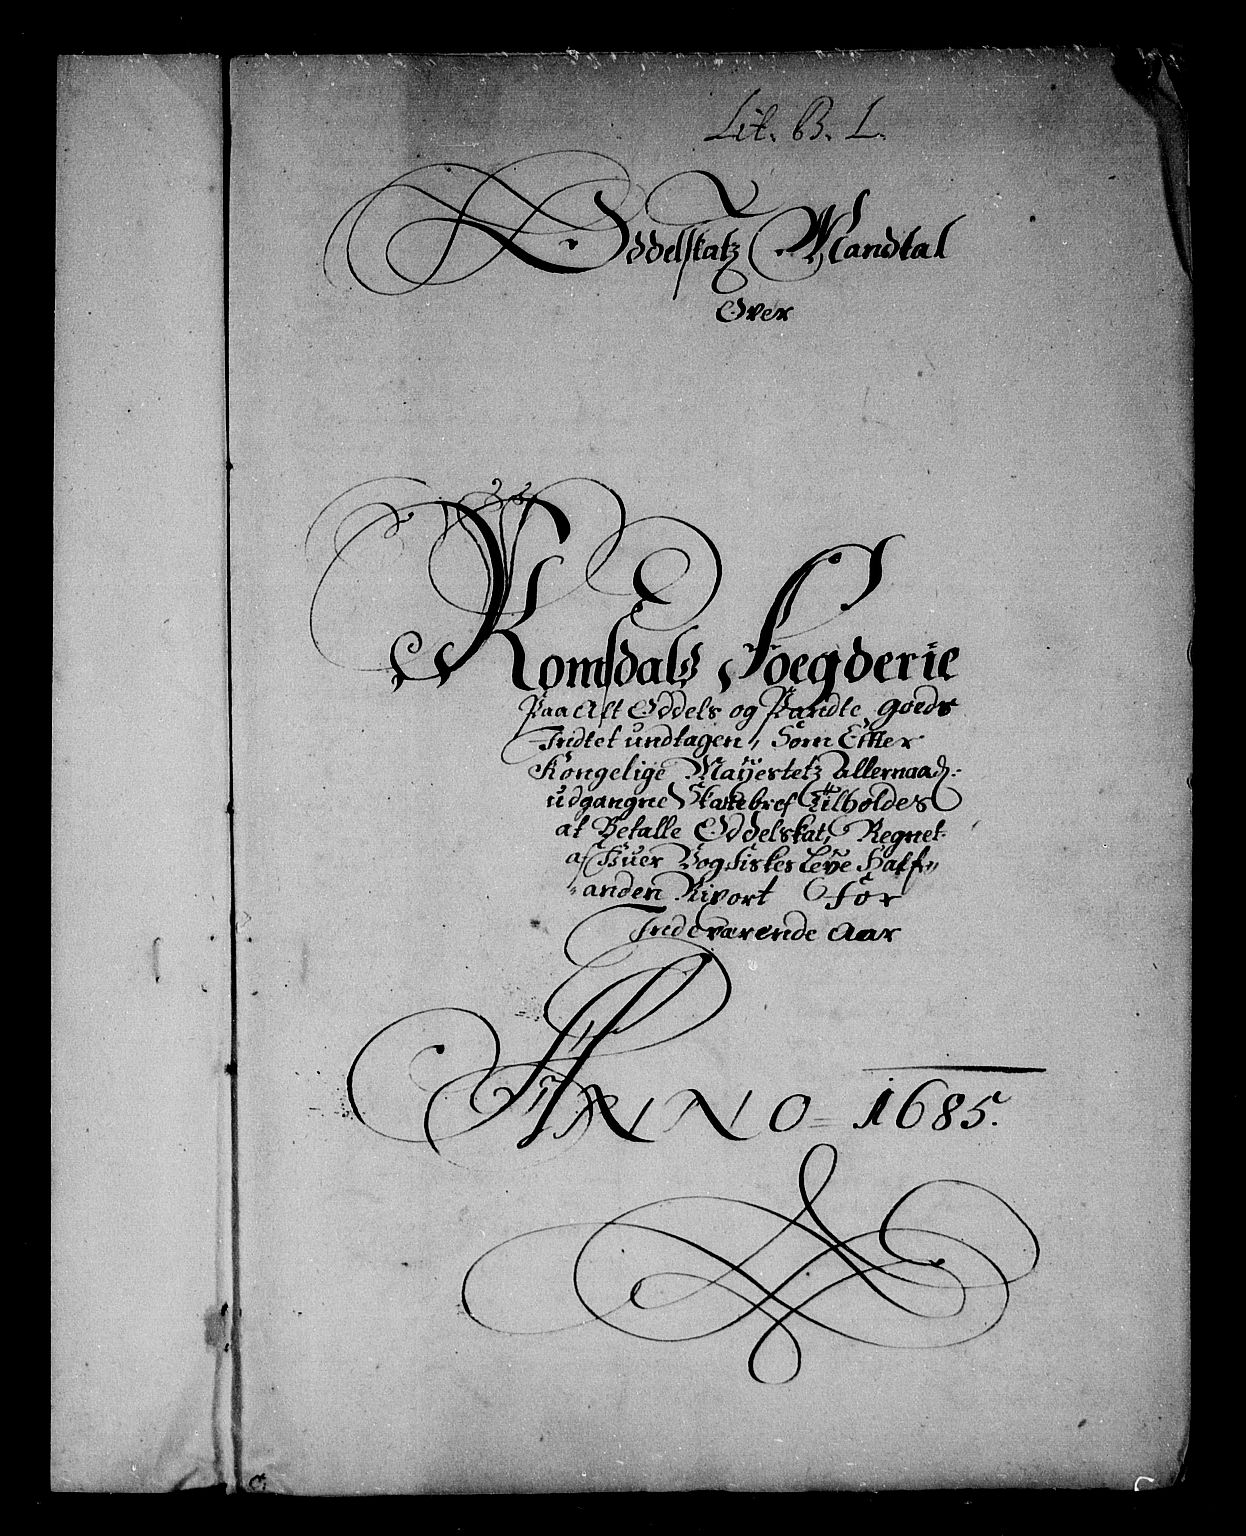 Lit. B. L.
Oddelskatz Mandtal
Over
Romsdals Foegderie
Paa Alt Oddels og Pandte goeds
Indtet undtagen, Som Effter
Kongelige Mayestetz allernaad:
udgangne Skattebref Tilholdes
at Betalle Oddelskat, Regnet
af Huer Vog fiskes Leye Halff
anden Rixort For
Indeværende Aar
ANNO 1685.